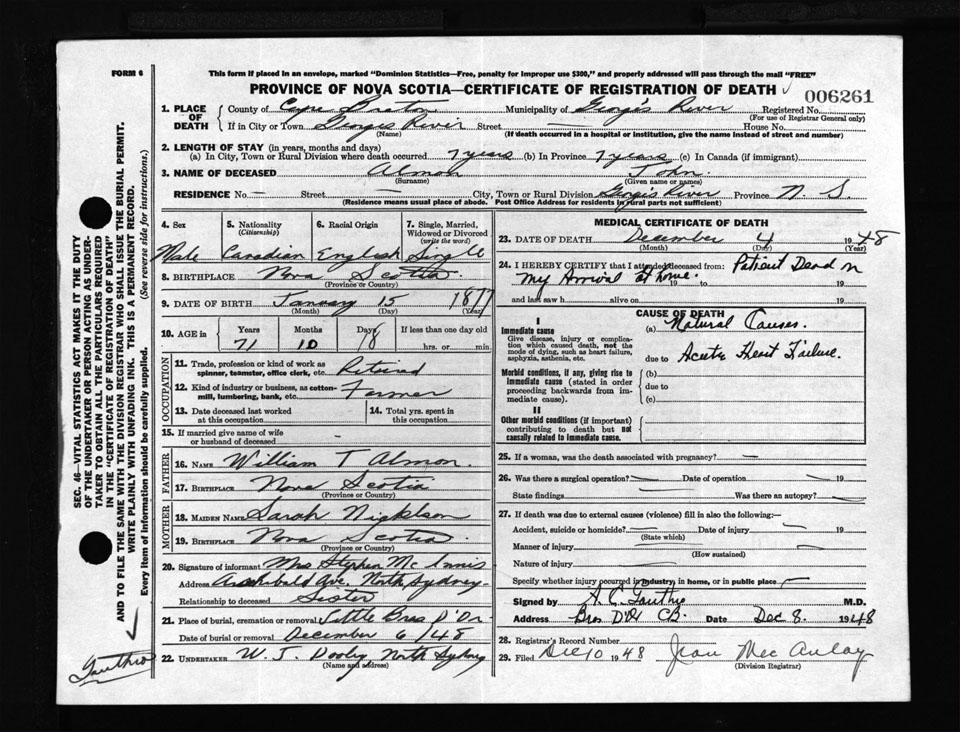 FORM 6
This form if placed in an envelope, marked "Dominion Statistics—Free, penalty for improper use $300," and properly addressed will pass through the mail "FREE"
PROVINCE OF NOVA SCOTIA—CERTIFICATE OF REGISTRATION OF DEATH
006261
1. PLACE OF DEATH
County of Cape Breton Municipality of Georges River Registered No.
(For use of Registrar General only)
If in City or Town Georges River Street — House No.
(Name) (If death occurred in a hospital or institution, give the name instead of street and number)
2. LENGTH OF STAY (in years, months and days)
(a) In City, Town or Rural Division where death occurred 7 years (b) In Province 7 years (c) In Canada (if immigrant)
3. NAME OF DECEASED Almon John.
(Surname) (Given name or names)
RESIDENCE No — Street — City, Town or Rural Division George's River Province N. S.
(Residence means usual place of abode. Post Office Address for residents in rural parts not sufficient)
4. Sex 5. Nationality (Citizenship) 6. Racial Origin 7. Single, Married, Widowed or Divorced (write the word)
Male Canadian English Single
8. BIRTHPLACE Nova Scotia.
(Province or Country)
9. DATE OF BIRTH January 15 1877
(Month) (Day) (Year)
10. AGE in Years Months Days If less than one day old
71 10 18 hrs. or min
OCCUPATION
11. Trade, profession or kind of work as spinner, teamster, office clerk, etc. Retired
12. Kind of industry or business, as cotton-mill, lumbering, bank, etc. Farmer
13. Date deceased last worked at this occupation 14. Total yrs. spent in this occupation
15. If married give name of wife or husband of deceased -
FATHER
16. NAME William T Almon.
17. BIRTHPLACE Nova Scotia
(Province or Country)
MOTHER
18. MAIDEN NAME Sarah
19. BIRTHPLACE Nova Scotia.
(Province or Country)
20. Signature of informant Mrs Stephen Mc Innis
Address Archibald Ave. North Sydney
Relationship to deceased Sister
21. Place of burial, cremation or removal Little Bras D'Or
Date of burial or removal December 6/48
22. UNDERTAKER W. J. Dooley North Sydney
(Name and address)
MEDICAL CERTIFICATE OF DEATH
23. DATE OF DEATH December 4 1948
(Month) (Day) (Year)
24. I HEREBY CERTIFY that I attended deceased from: Patient Dead on
My Arrival at home. 19 to 19
and last saw h alive on 19
CAUSE OF DEATH
I
Immediate cause (a) Natural Causes.
Give disease, injury or complication which caused death, not the mode of dying, such as heart failure, asphyxia, asthenia, etc.
due to Acute Heart Failure.
Morbid conditions, if any, giving rise to immediate cause (stated in order proceeding backwards from immediate cause).
(b)
due to
(c)
II
Other morbid conditions (if important) contributing to death but not causally related to immediate cause.
25. If a woman, was the death associated with pregnancy? —
26. Was there a surgical operation? — Date of operation — 19
State findings — Was there an autopsy? —
27. If death was due to external causes (violence) fill in also the following:—
Accident, suicide or homicide? — Date of injury — 19
(State which)
Manner of injury —
(How sustained)
Nature of injury —
Specify whether injury occurred in industry, in home, or in public place —
Signed by A. C. Gouthro M.D.
Address Bras D'Or C.B. Date Dec 8. 1948
28. Registrar's Record Number
29. Filed Dec 10 1948 Jean Mac Aulay
(Division Registrar)
SEC. 46—VITAL STATISTICS ACT MAKES IT THE DUTY
OF THE UNDERTAKER OR PERSON ACTING AS UNDER-
TAKER TO OBTAIN ALL THE PARTICULARS REQUIRED
IN THE "CERTIFICATE OF REGISTRATION OF DEATH"
AND TO FILE THE SAME WITH THE DIVISION REGISTRAR WHO SHALL ISSUE THE BURIAL PERMIT.
WRITE PLAINLY WITH UNFADING INK. THIS IS A PERMANENT RECORD.
Every item of information should be carefully supplied. (See reverse side for instructions.)
Gouthro